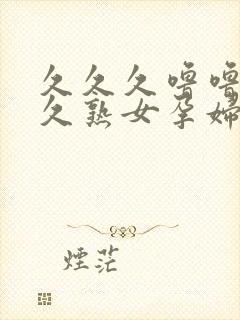 久久久噜噜
久熟女孕婦
煙茫